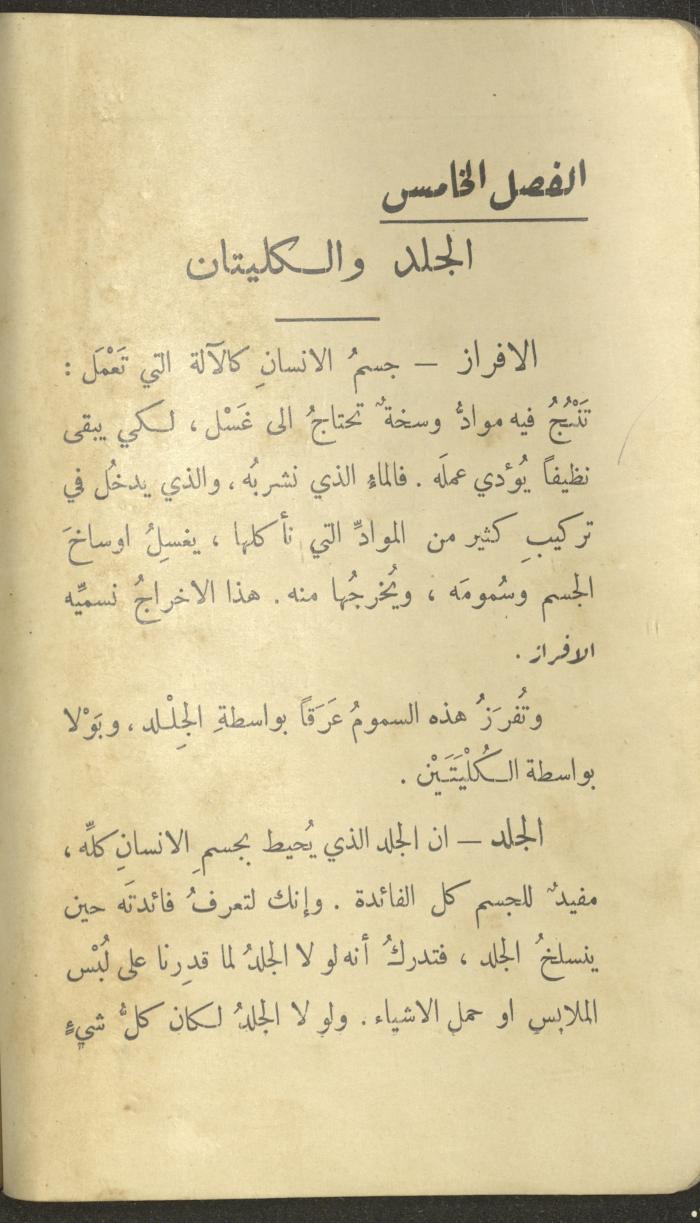 الفصل الخامس
الجلد والكليتان
الافراز — جسمُ الانسانِ كالآلة التي تَعْمَل :
تَنْتُجُ فيه موادُّ وسخةٌ تحتاجُ الى غَسْل ، لكي يبقى
نظيفاً يُؤدي عملَه . فالماء الذي نشربُه ، والذي يدخُل في
تركيبِ كثير من الموادِّ التي نأكلها ، يغسِلُ اوساخَ
الجسم وسُمومَه ، ويُخرجُها منه . هذا الاخراجُ نسمِّيه
الافراز .
وتُفرَزُ هذه السمومُ عَرَقاً بواسطةِ الجِلْد ، وبَوْلا
بواسطة الكُلْيَتَيْن .
الجلد — ان الجلد الذي يُحيط بجسمِ الانسانِ كلِّه ،
مفيدٌ للجسم كل الفائدة . وإنك لتعرفُ فائدتَه حين
ينسلخُ الجلد ، فتدركُ أنه لو لا الجلدُ لما قدِرنا على لُبْس
الملابس او حمل الاشياء . ولو لا الجلدُ لكان كلُّ شيءٍ